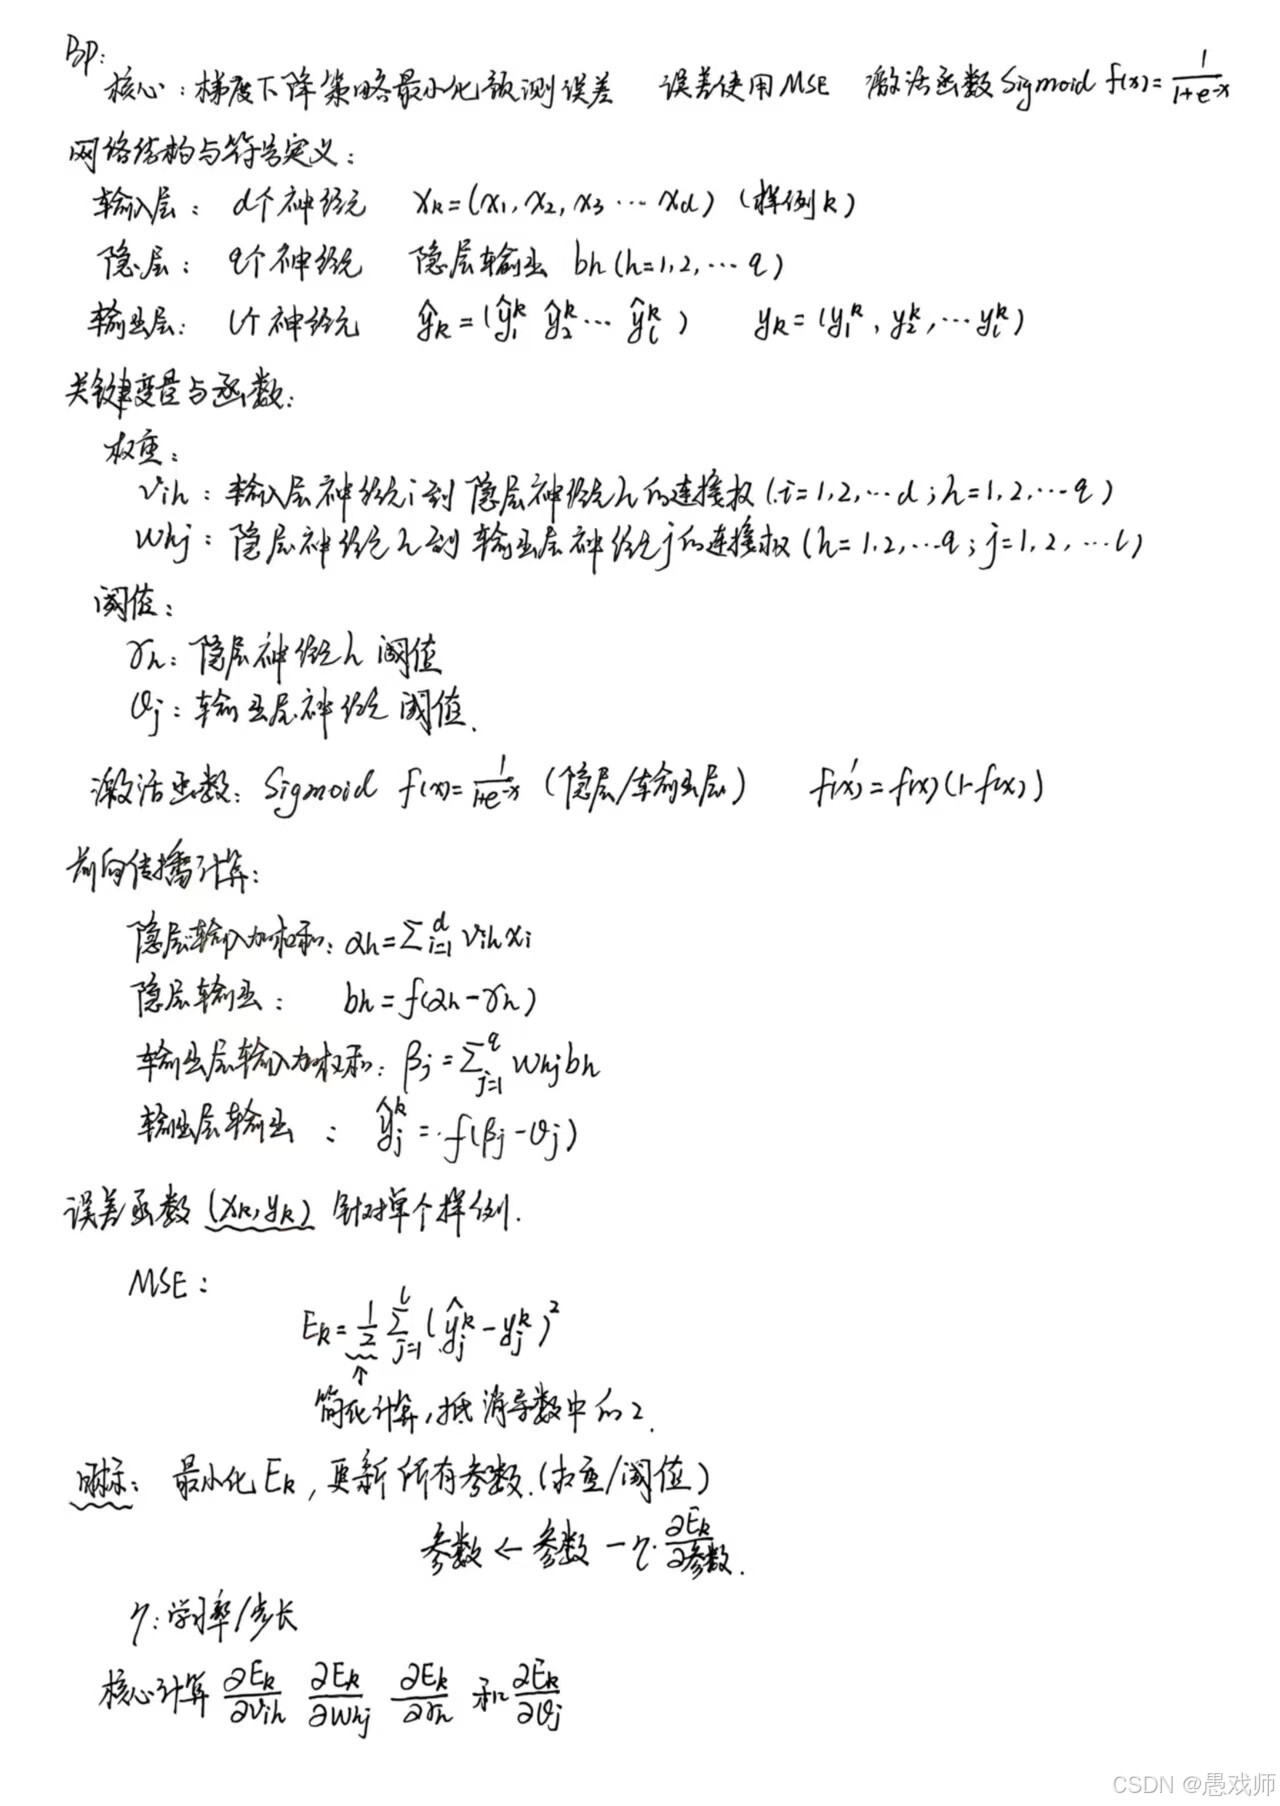 BP:
核心：梯度下降策略最小化预测误差 误差使用MSE 激活函数Sigmoid f(x)=1/(1+e^-x)
网络结构与符号定义：
输入层： d个神经元 xk=(x1, x2, x3 ··· xd) (样例k)
隐层： q个神经元 隐层输出 bh (h=1,2,··· q)
输出层： l个神经元 ŷk=(ŷ1^k ŷ2^k ··· ŷl^k) yk=(y1^k, y2^k, ··· yl^k)
关键变量与函数：
权重：
vih：输入层神经元i到隐层神经元h的连接权(i=1,2,··· d; h=1,2,··· q)
whj：隐层神经元h到输出层神经元j的连接权(h=1,2,··· q; j=1,2,··· l)
阈值：
γh：隐层神经元h阈值
θj：输出层神经元阈值.
激活函数：Sigmoid f(x)=1/(1+e^-x) (隐层/输出层) f'(x)=f(x)(1-f(x))
前向传播计算：
隐层输入加权和：αh=∑_{i=1}^{d} vih xi
隐层输出： bh=f(αh-γh)
输出层输入加权和：βj=∑_{j=1}^{q} whj bh
输出层输出 ： ŷj^k=f(βj-θj)
误差函数 (xk, yk) 针对单个样例.
MSE：
Ek=1/2 ∑_{j=1}^{l} (ŷj^k-yj^k)^2
↑
简化计算,抵消导数中的2.
目标： 最小化Ek, 更新所有参数.(权重/阈值)
参数 ← 参数 - η·∂Ek/∂参数.
η：学习率/步长
核心计算 ∂Ek/∂vih ∂Ek/∂whj ∂Ek/∂γh 和 ∂Ek/∂θj
CSDN @愚戏师